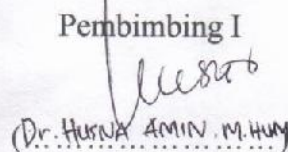 Pembimbing I
(Dr. HUSNA AMIN. M.HUM